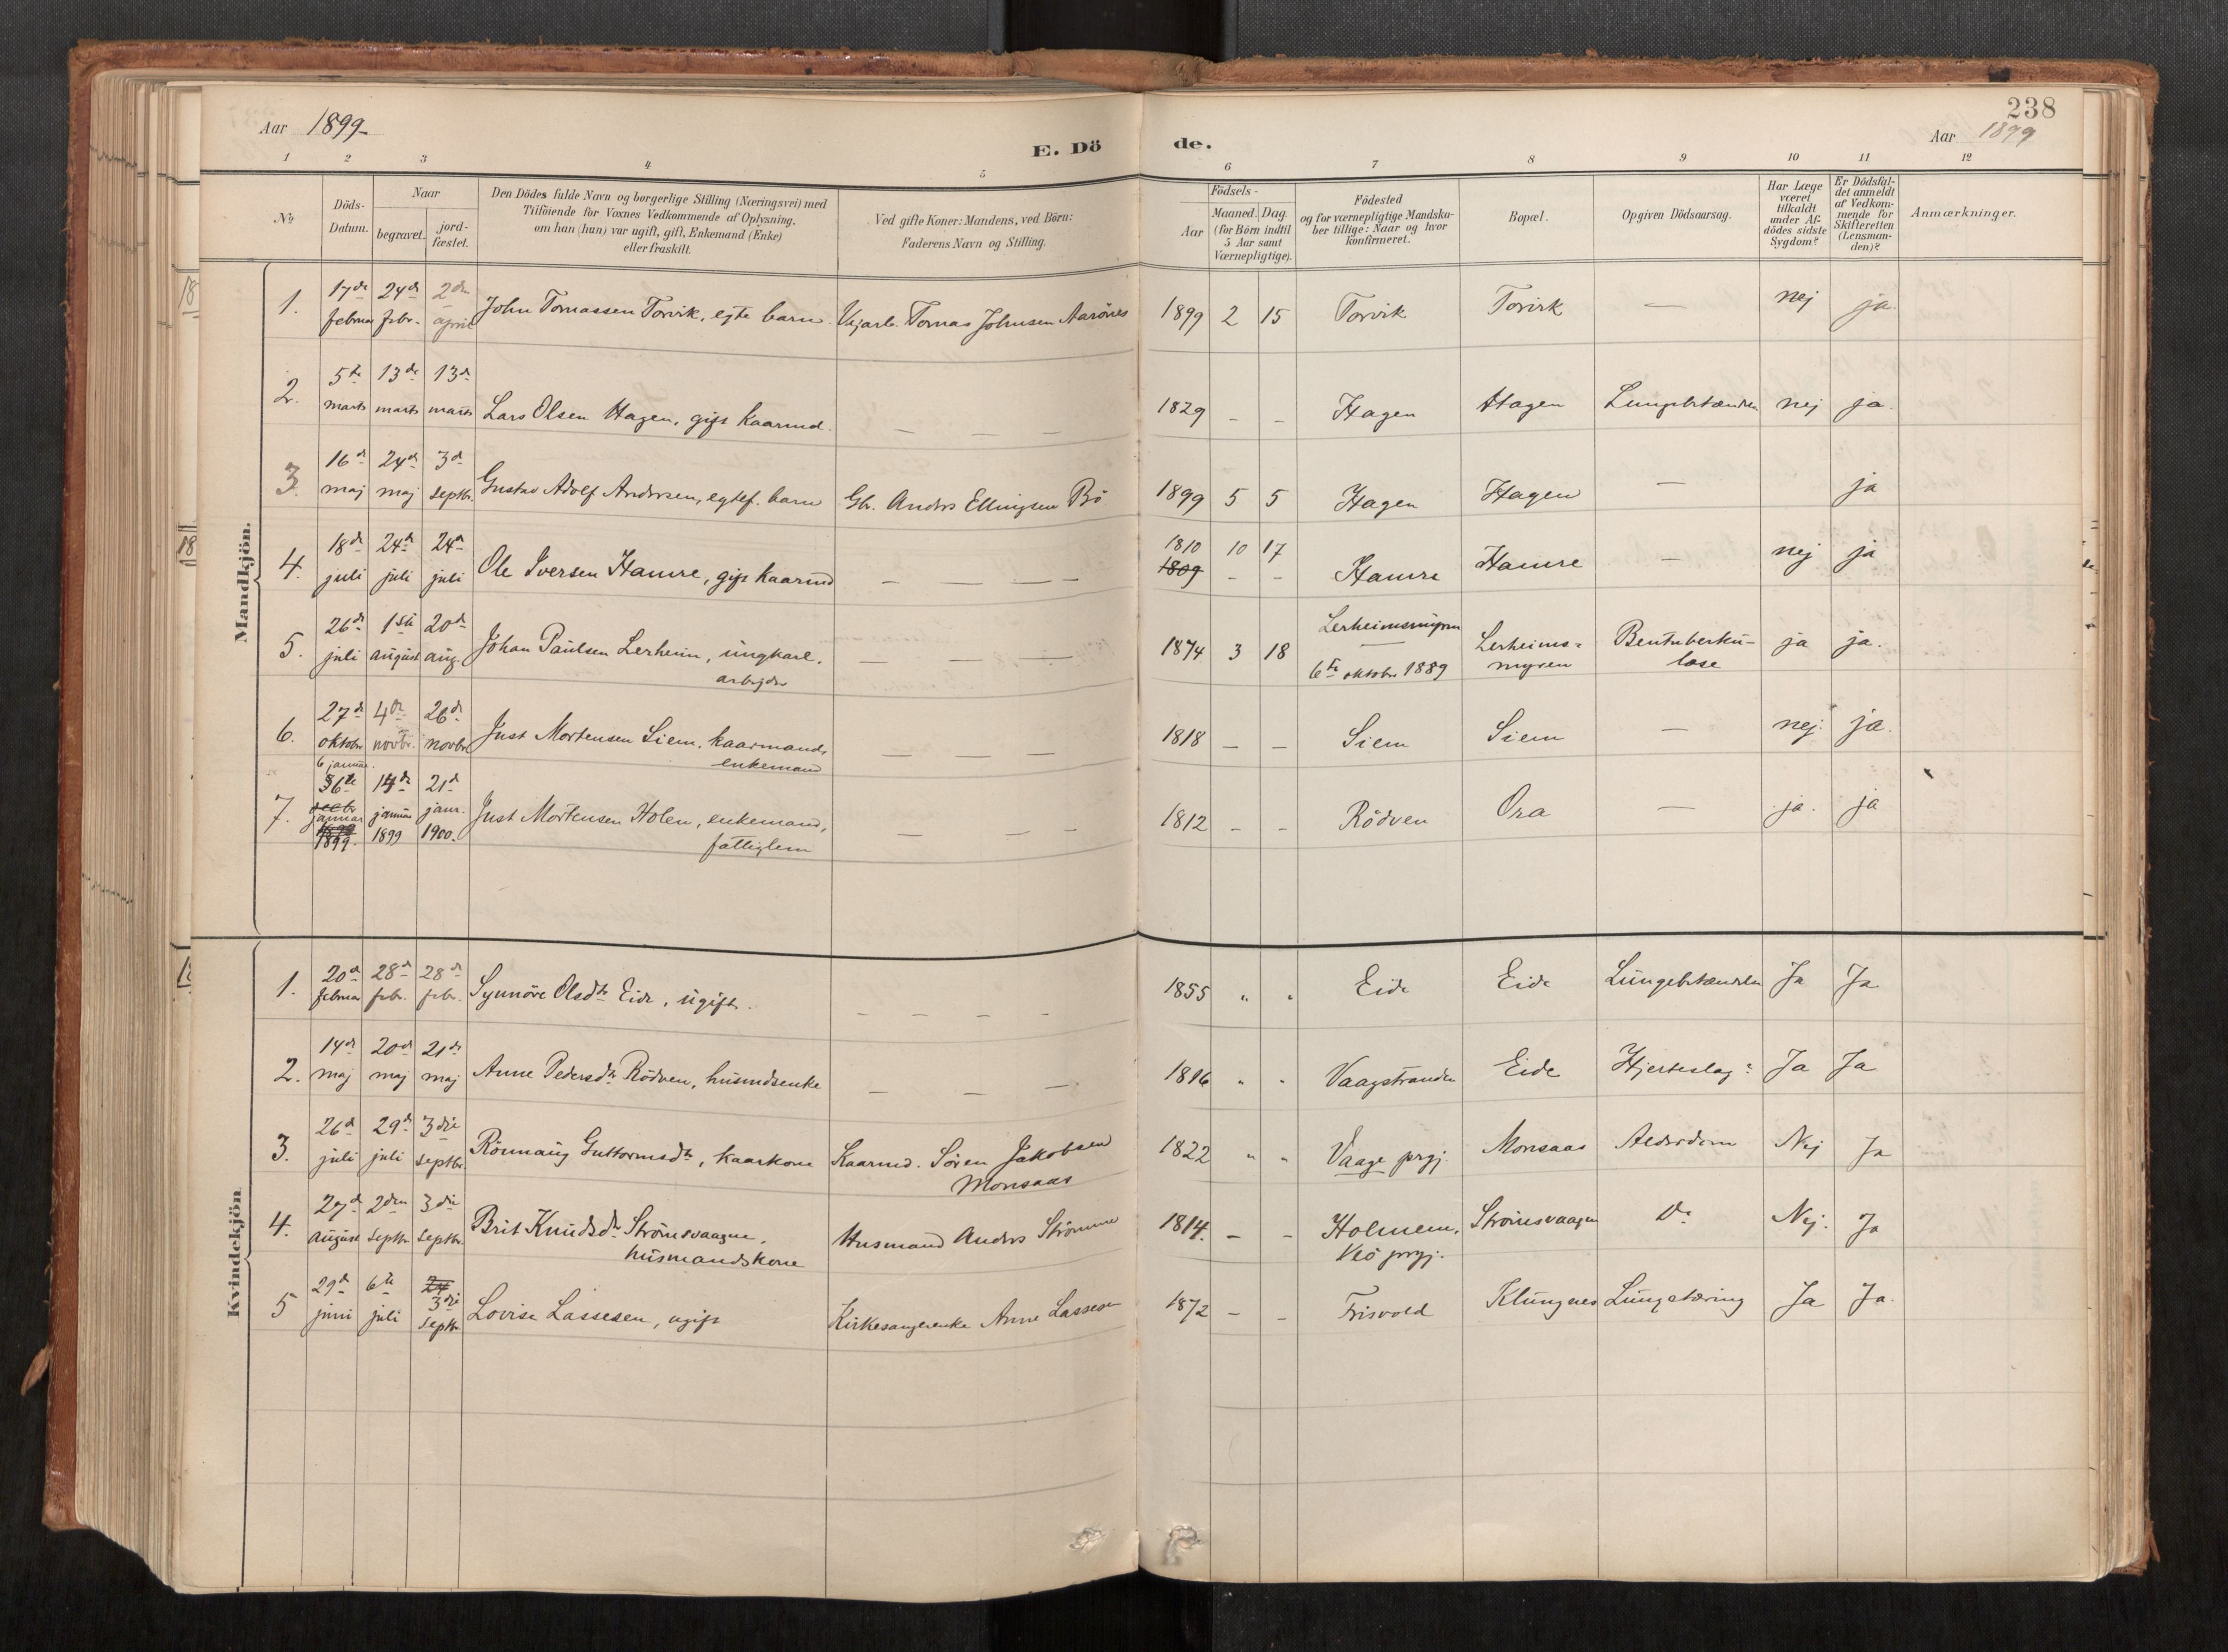 238
Aar 1899
Aar 1899
E. Dö de.
1 2 3 4 5 6 7 8 9 10 11 12
No.
Döds-Datum.
Naar
begravet.
jord-fæstet.
Den Dödes fulde Navn og borgerlige Stilling (Næringsvei) med
Tilföiende for Voxnes Vedkommende af Oplysning,
om han (hun) var ugift, gift, Enkemand (Enke)
eller fraskilt.
Ved gifte Koner: Mandens, ved Börn:
Faderens Navn og Stilling.
Födsels-
Aar
Maaned. Dag.
(for Börn indtil
5 Aar samt
Værnepligtige).
Födested
og for værnepligtige Mandska-
ber tillige: Naar og hvor
konfirmeret.
Bopæl.
Opgiven Dödsaarsag.
Har Læge
været
tilkaldt
under Af-
dödes sidste
Sygdom?
Er Dödsfal-
det anmeldt
af Vedkom-
mende for
Skifteretten
(Lensman-
den)?
Anmærkninger.
Mandkjön.
1. 17de februar 24de febr. 2den april John Tomassen Torvik, egte barn. Tomas Johnsen Aarönes 1899 2 15 Torvik Torvik — nej ja.
2. 5te marts 13de marts 13de marts Lars Olsen Hagen, gift kaarmd. — — — 1829 - - Hagen Hagen Lungebetændelse nej ja.
3. 16de maj 24de maj 3die septbr. Gustav Adolf Andersen, egtef. barn Gbr. Anders Ellingsen Bö 1899 5 5 Hagen Hagen — ja
4. 18de juli 24de juli 24de juli Ole Iversen Hamre, gift kaarmd — — — — 1810 10 17
1809 - - Hamre Hamre — nej ja
5. 26de juli 1ste august 20de aug. Johan Paulsen Lerheim, ungkarl,
arbejder — — — 1874 3 18 Lerheimsmyren
—
6te oktober 1889 Lerheims=
myren Bentuberku-
lose ja ja.
6. 27de oktober 4de novbr. 26de novbr. Just Mortensen Siem, kaarmand,
enkemand — — — 1818 — — Siem Siem — nej. ja.
7. 6 januar. januar 1899. 14de januar 1899 21de janr. 1900. Just Mortensen Holen, enkemand,
fattiglem — — — 1812 - - Rödven Ora — ja. ja
Kvindekjön.
1. 20de februar 28de febr. 28de febr. Synnöve Olsdtr Eide, ugift. — — — — 1855 " " Eide Eide Lungebetændelse Ja Ja
2. 14de maj 20de maj 21de maj Anne Pedersdtr Rödven, husmdsenke — — — 1816 " " Vaagstranden Eide Hjerteslag? Ja Ja
3. 26de juli 29de juli 3die septbr. Rönnaug Guttormsdtr, kaarkone Kaarmd. Sören Jakobsen
Monsaas 1822 " " Vaage prgj. Monsaas Alderdom Nej Ja
4. 27de august 2den septbr. 3die septbr. Brit Knudsdtr Strömsvaagen,
husmandskone Husmand Anders Strömme 1814. — - Holmem,
Veö prgj. Strömsvaagen Do Nej. Ja
5 29de juni 6te juli 3die septbr Lovise Lassesen, ugift Kirkesangerenke Anne Lassesen 1872 — - Frisvold Klungnes Lungetæring Ja Ja.